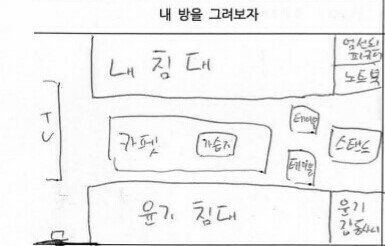 내 방을 그려보자
내 침대
피규어
노트북
TV
카펫
가습기
테이블
테이블
스탠드
윤기 침대
윤기